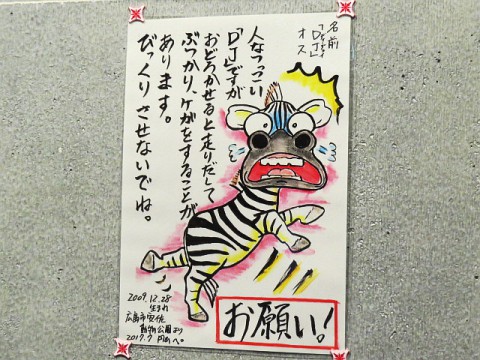 名前
「DJ」
オス
人なつっこい
「DJ」ですが
おどろかせると走りだして
ぶつかり、ケガをすることが
あります。
びっくりさせないでね。
2009.12.28
生まれ
広島市安佐
動物公園より
2017.7
お願い!